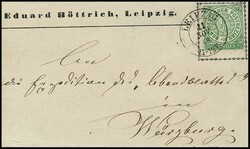 Eduard Böttrich, Leipzig.
LEIPZIG
An
die Expedition des "Abendblattes"
in
Würzburg.